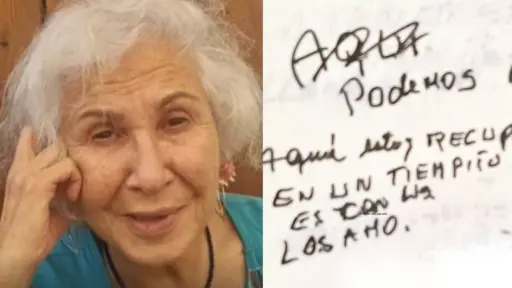 Podemos
Aquí estoy RECUP
EN UN TIEMPITO
ES CON US
LOS AMO.